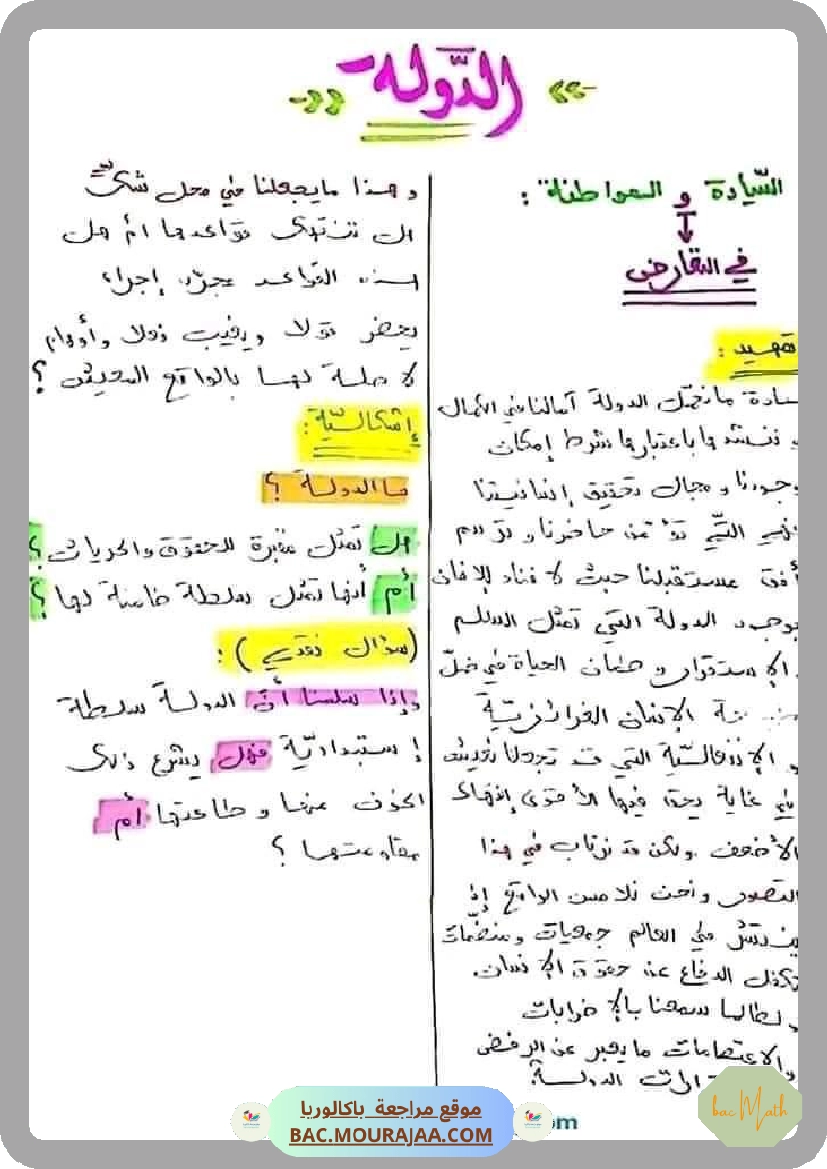 الدّولة
السّيادة و المواطنة :
في التعارض
تمهيد :
ـادة ما نحمّل الدولة آمالنا في الأعمال
و ننشدها باعتبارها شرط إمكان
وجودنا و مجال تحقيق إنسانيتنا
فهي التّي تؤمن حاضرنا و ترسم
أفق مستقبلنا حيث لا غناء للإنسان
بوجود الدولة التي تمثل السلم
و الإستقرار و ضمان الحياة في ظلّ
الإنسان الغرائزيّة
و الإنفعاليّة التي قد تجعلنا نعيش
في غابة يحق فيها الأقوى إنهاء
الأضعف ولكن قد نرتاب في هذا
التصور و نحن نلامس الواقع إذ
ينتشر في العالم جمعيات ومنظّمات
تكفل الدفاع عن حقوق الإنسان.
و لطالما سمعنا بالإضرابات
والإعتصامات ما يعبر عن الرفض
الدولة.
و هذا ما يجعلنا في محل شكّ
هل تنتهك قواعدها أم هل
هذه القواعد مجرّد إجراء
يحضر قولا و يغيب فعلا و أوهام
لا صلة لها بالواقع المعيش ؟
إشكاليّة :
ما الدولة ؟
هل تمثل مقبرة للحقوق والحريات ؟
أم أنها تمثل سلطة ضامنة لها ؟
(سؤال نقدي) :
وإذا سلمنا أنّ الدولة سلطة
إستبداديّة فهل يشرع ذلك
الخوف منها و طاعتها أم
مقاومتها ؟
bacMath
موقع مراجعة باكالوريا
BAC.MOURAJAA.COM
om